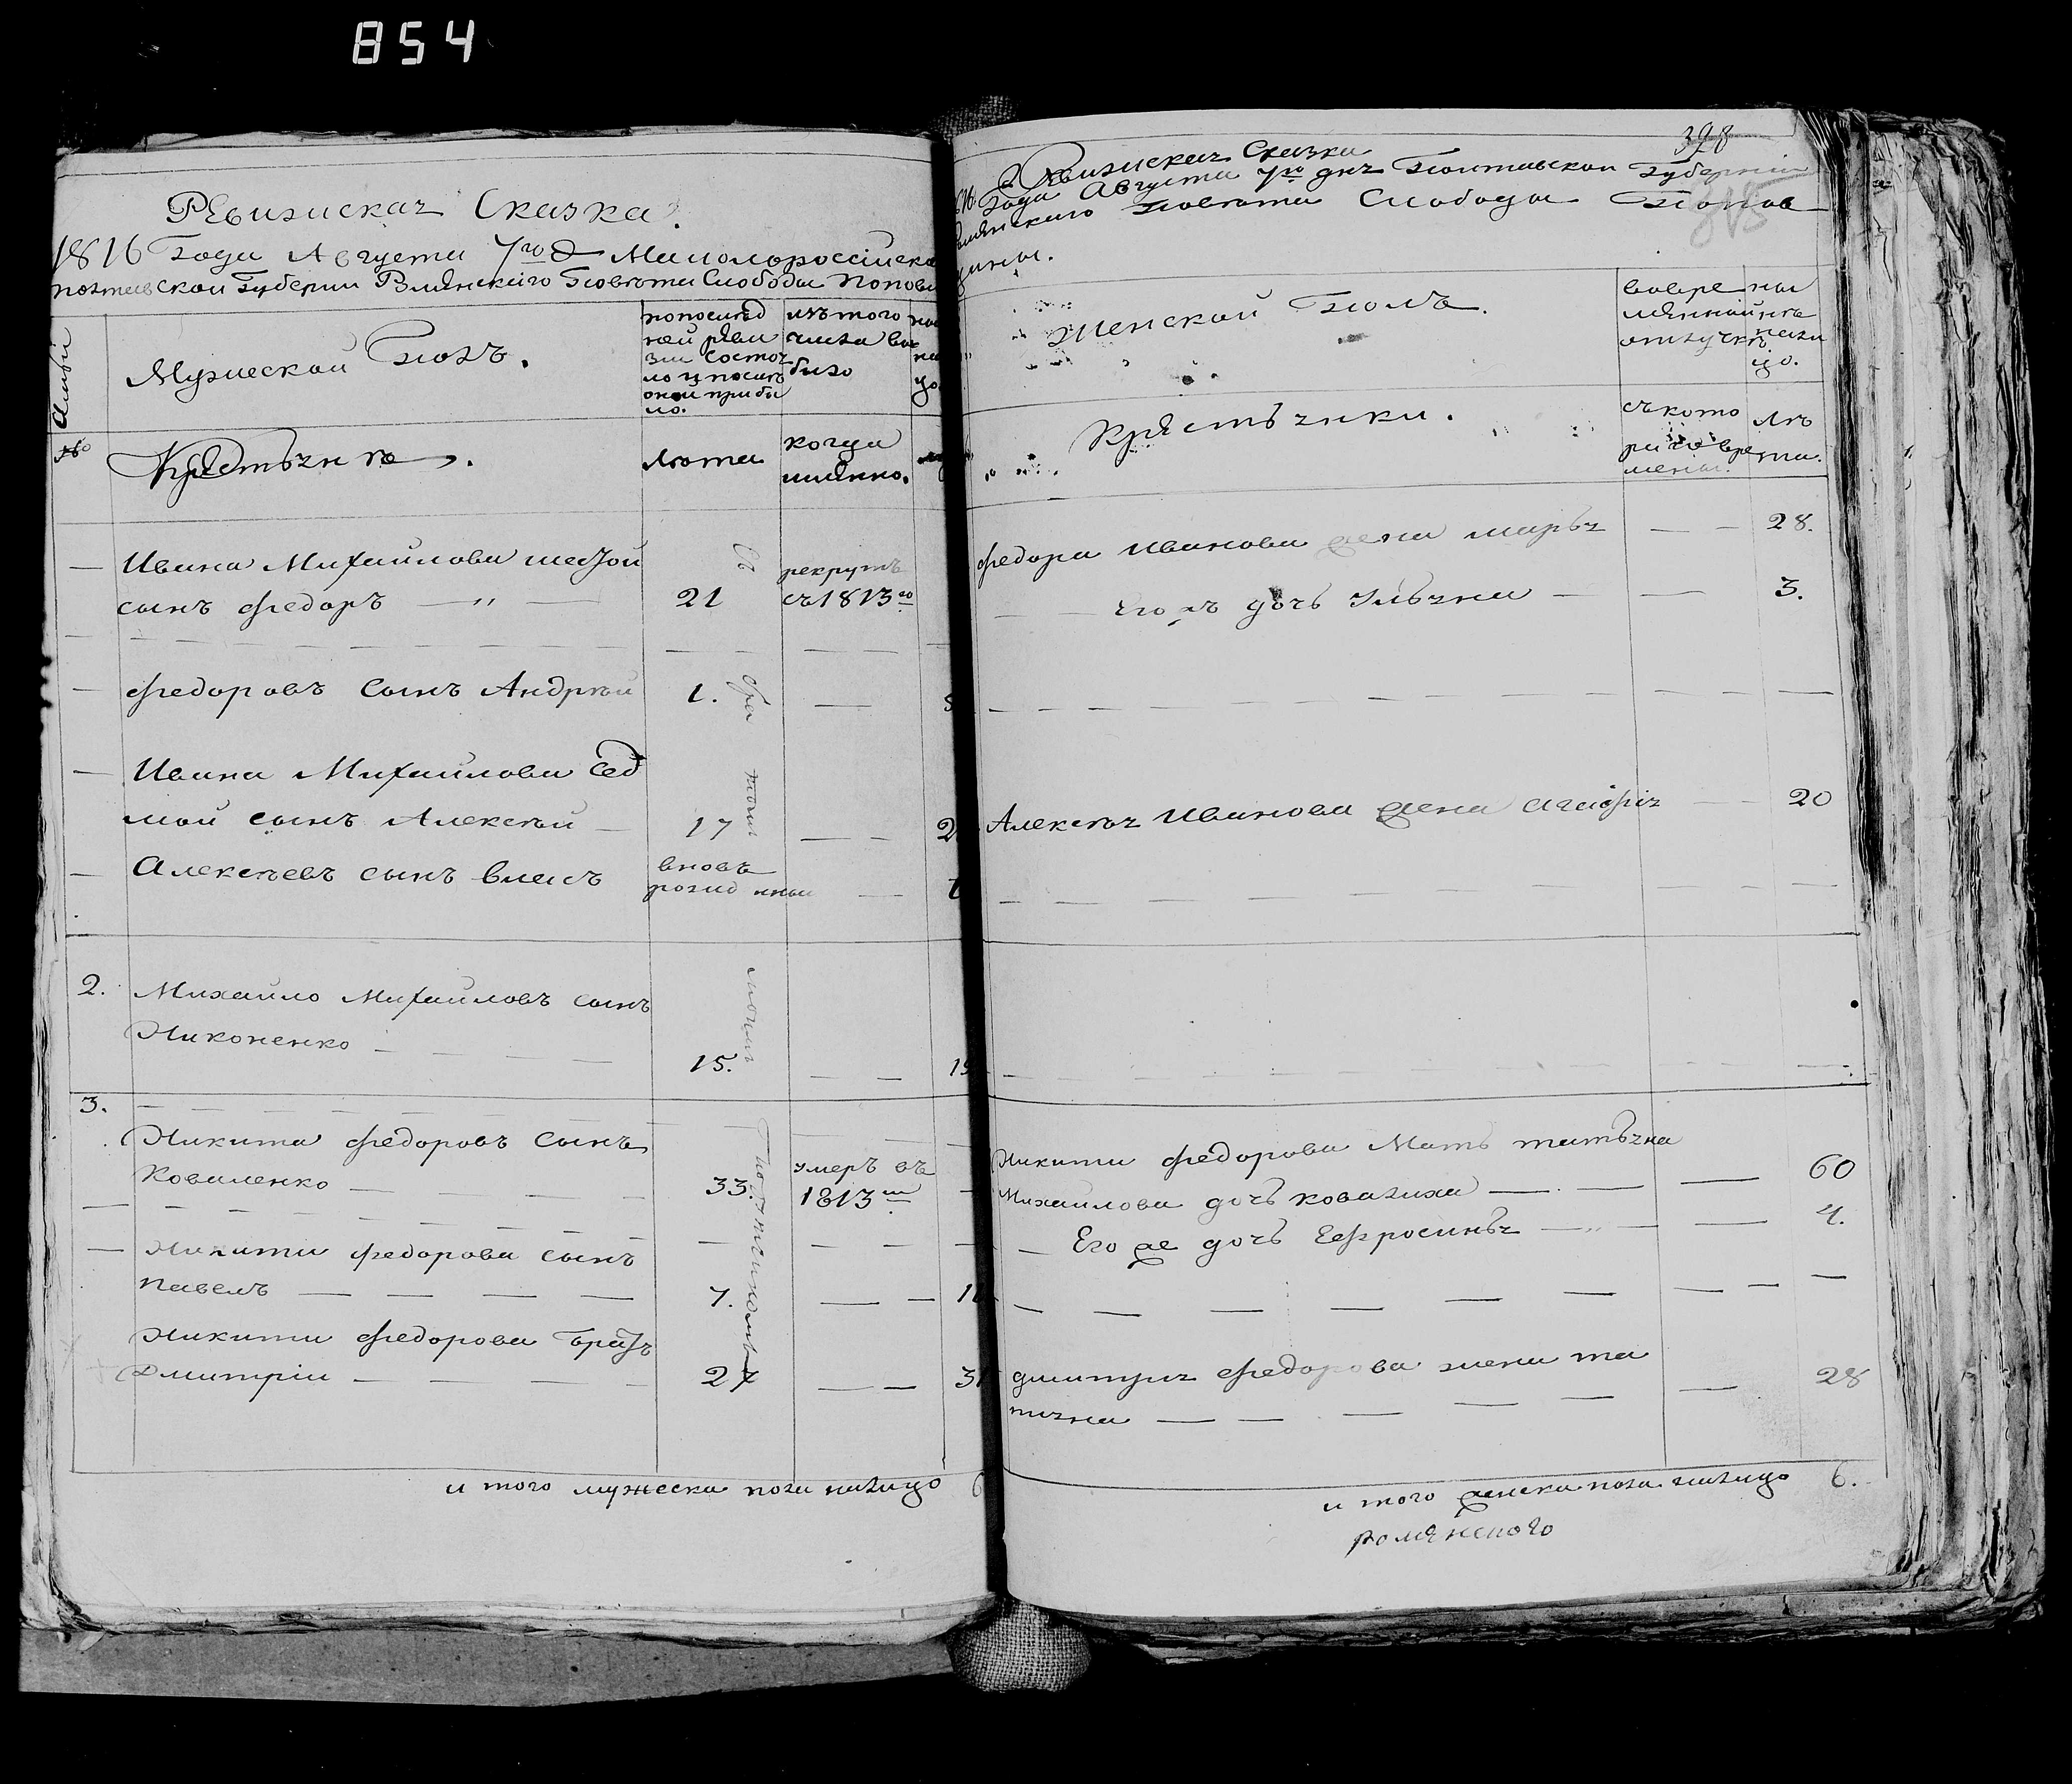 854
Ревизиская Сказка.
1816 Года Августа 7го Д Малолороссійска
полтавской Губерніи Роменского Повѣта Слободы Попов
Мужеской Полъ.
попослѣд
ней реви
зіи состоя
ло и послѣ
оной прибы
ло.
изъ того
числа вы
было
№
Крестьянѣ.
лѣта
когда
имянно.
Ивана Михайлова шестой
сынъ Федоръ — „ —
21
рекрутъ
съ 1813го
Федоровъ Сынъ Андрѣй
1.
Ивана Михайлова Сед
мой сынъ Алексѣй —
17
2
Алексѣевъ сынъ Власъ
вновь
рожденный
2. Михайло Михайловъ сынъ
Никоненко
15.
19
3.
Никита Федоровъ Сынъ
Коваленко
33.
умеръ въ
1813м
Никиты Федорова сынъ
Павелъ
7.
11
Никиты Федорова Братъ
Дмитрій
27
31
и того мужеска пола налицо 6
398
Ревизиская Сказка
Года Августа 7го дня Полтавской Губерніи
Роменского Повѣта Слободы Попов
щины.
815
Женской Полъ.
вовре
менной
отлучкѣ
ны
нѣ
нали
цо.
Крестьянки.
съ кото
раго вре
мены.
лѣ
та.
Федора Иванова жена марья
28.
Его жъ дочь Ульяна
3.
Алексѣя Иванова жена агафія
20
Никиты Федорова Мать татьяна
Михайлова дочь ковалиха
60
Его же дочь Ефросинья — „ —
4.
дмитрія Федорова жена та
тияна
28
и того женска пола налицо 6.
роменского